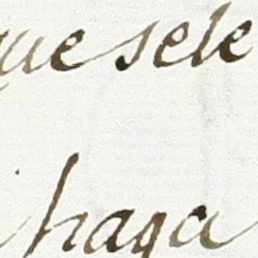 que sele
haga